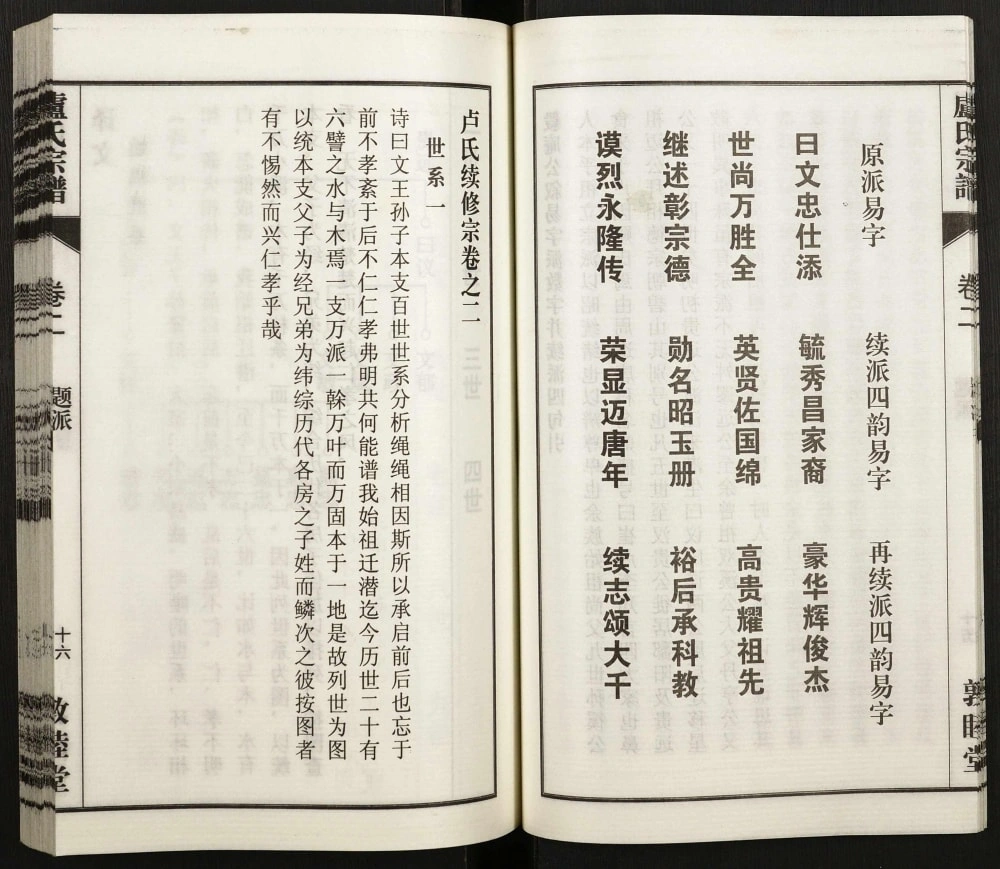 盧氏宗譜
卷二
敦睦堂
原派易字
曰文忠仕添
世尚万胜全
继述彰宗德
谟烈永隆传
续派四韵易字
毓秀昌家裔
英贤佐国绵
勋名昭玉册
荣显迈唐年
再续派四韵易字
豪华辉俊杰
高贵耀祖先
裕后承科教
续志颂大千
卢氏续修宗卷之二
世系一
诗曰文王孙子本支百世世系分析绳绳相因斯所以承启前后也忘于
前不孝紊于后不仁仁孝弗明共何能谱我始祖迁潜迄今历世二十有
六譬之水与木焉一支万派一榦万叶而万固本于一地是故列世为图
以统本支父子为经兄弟为纬综历代各房之子姓而鳞次之彼按图者
有不惕然而兴仁孝乎哉
盧氏宗譜
卷二
题派
十六
敦睦堂